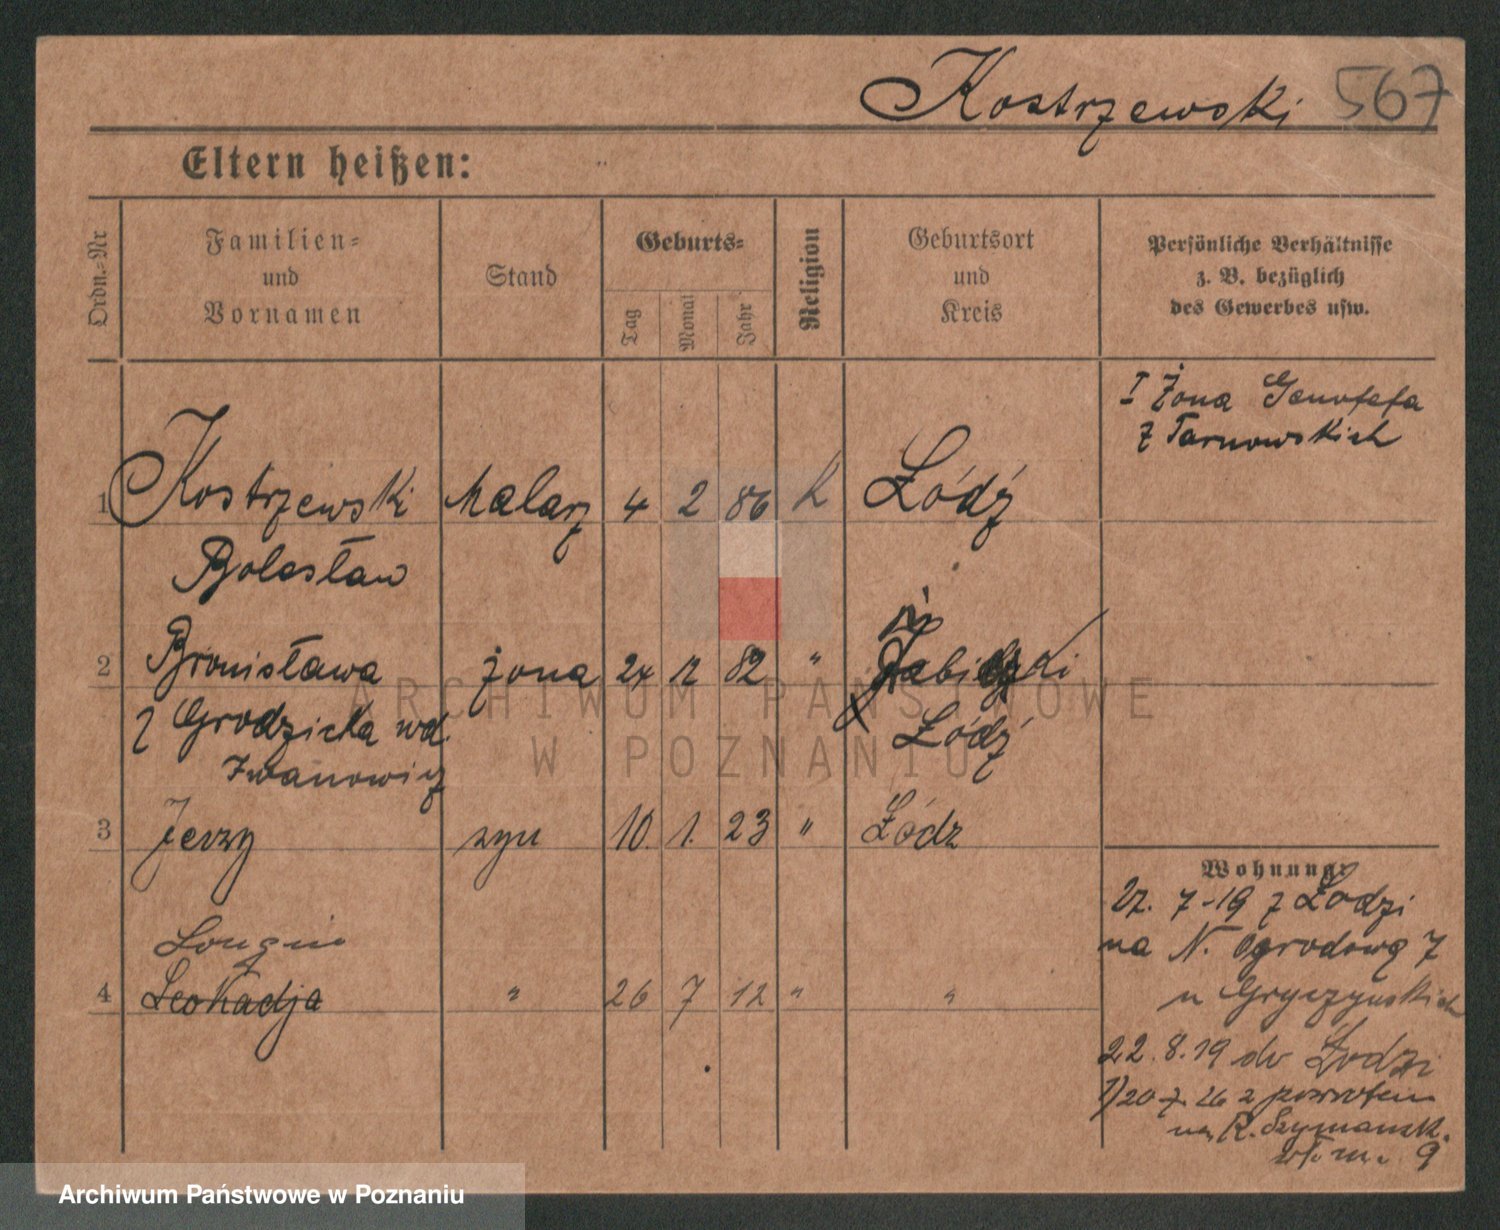 Kostrzewski 567
Eltern heißen:
Ordn.=Nr
Familien=
und
Vornamen
Stand
Geburts=
Tag
Monat
Jahr
Religion
Geburtsort
und
Kreis
Persönliche Verhältnisse
z. B. bezüglich
des Gewerbes usw.
I Żona Genofefa
z Tarnowskich
1 Kostrzewski Malarz 4 2 86 K Łódź
Bolesław
2 Bronisława żona 24 12 82 "
z Grodzicka wd. Łódź
Iwanowicz
3 Jerzy syn 10. 1. 23 " Łódz
Longin
4 Leokadja " 26 7 12 " "
Wohnung:
22. 7-19 z Łodzi
na N. Ogrodową 7
u Gryczyńskich
22.8.19 do Łodzi
1) 20 7. 26 z powrotem
na R. Szymansk.
9
ARCHIWUM PAŃSTWOWE
W POZNANIU
Archiwum Państwowe w Poznaniu